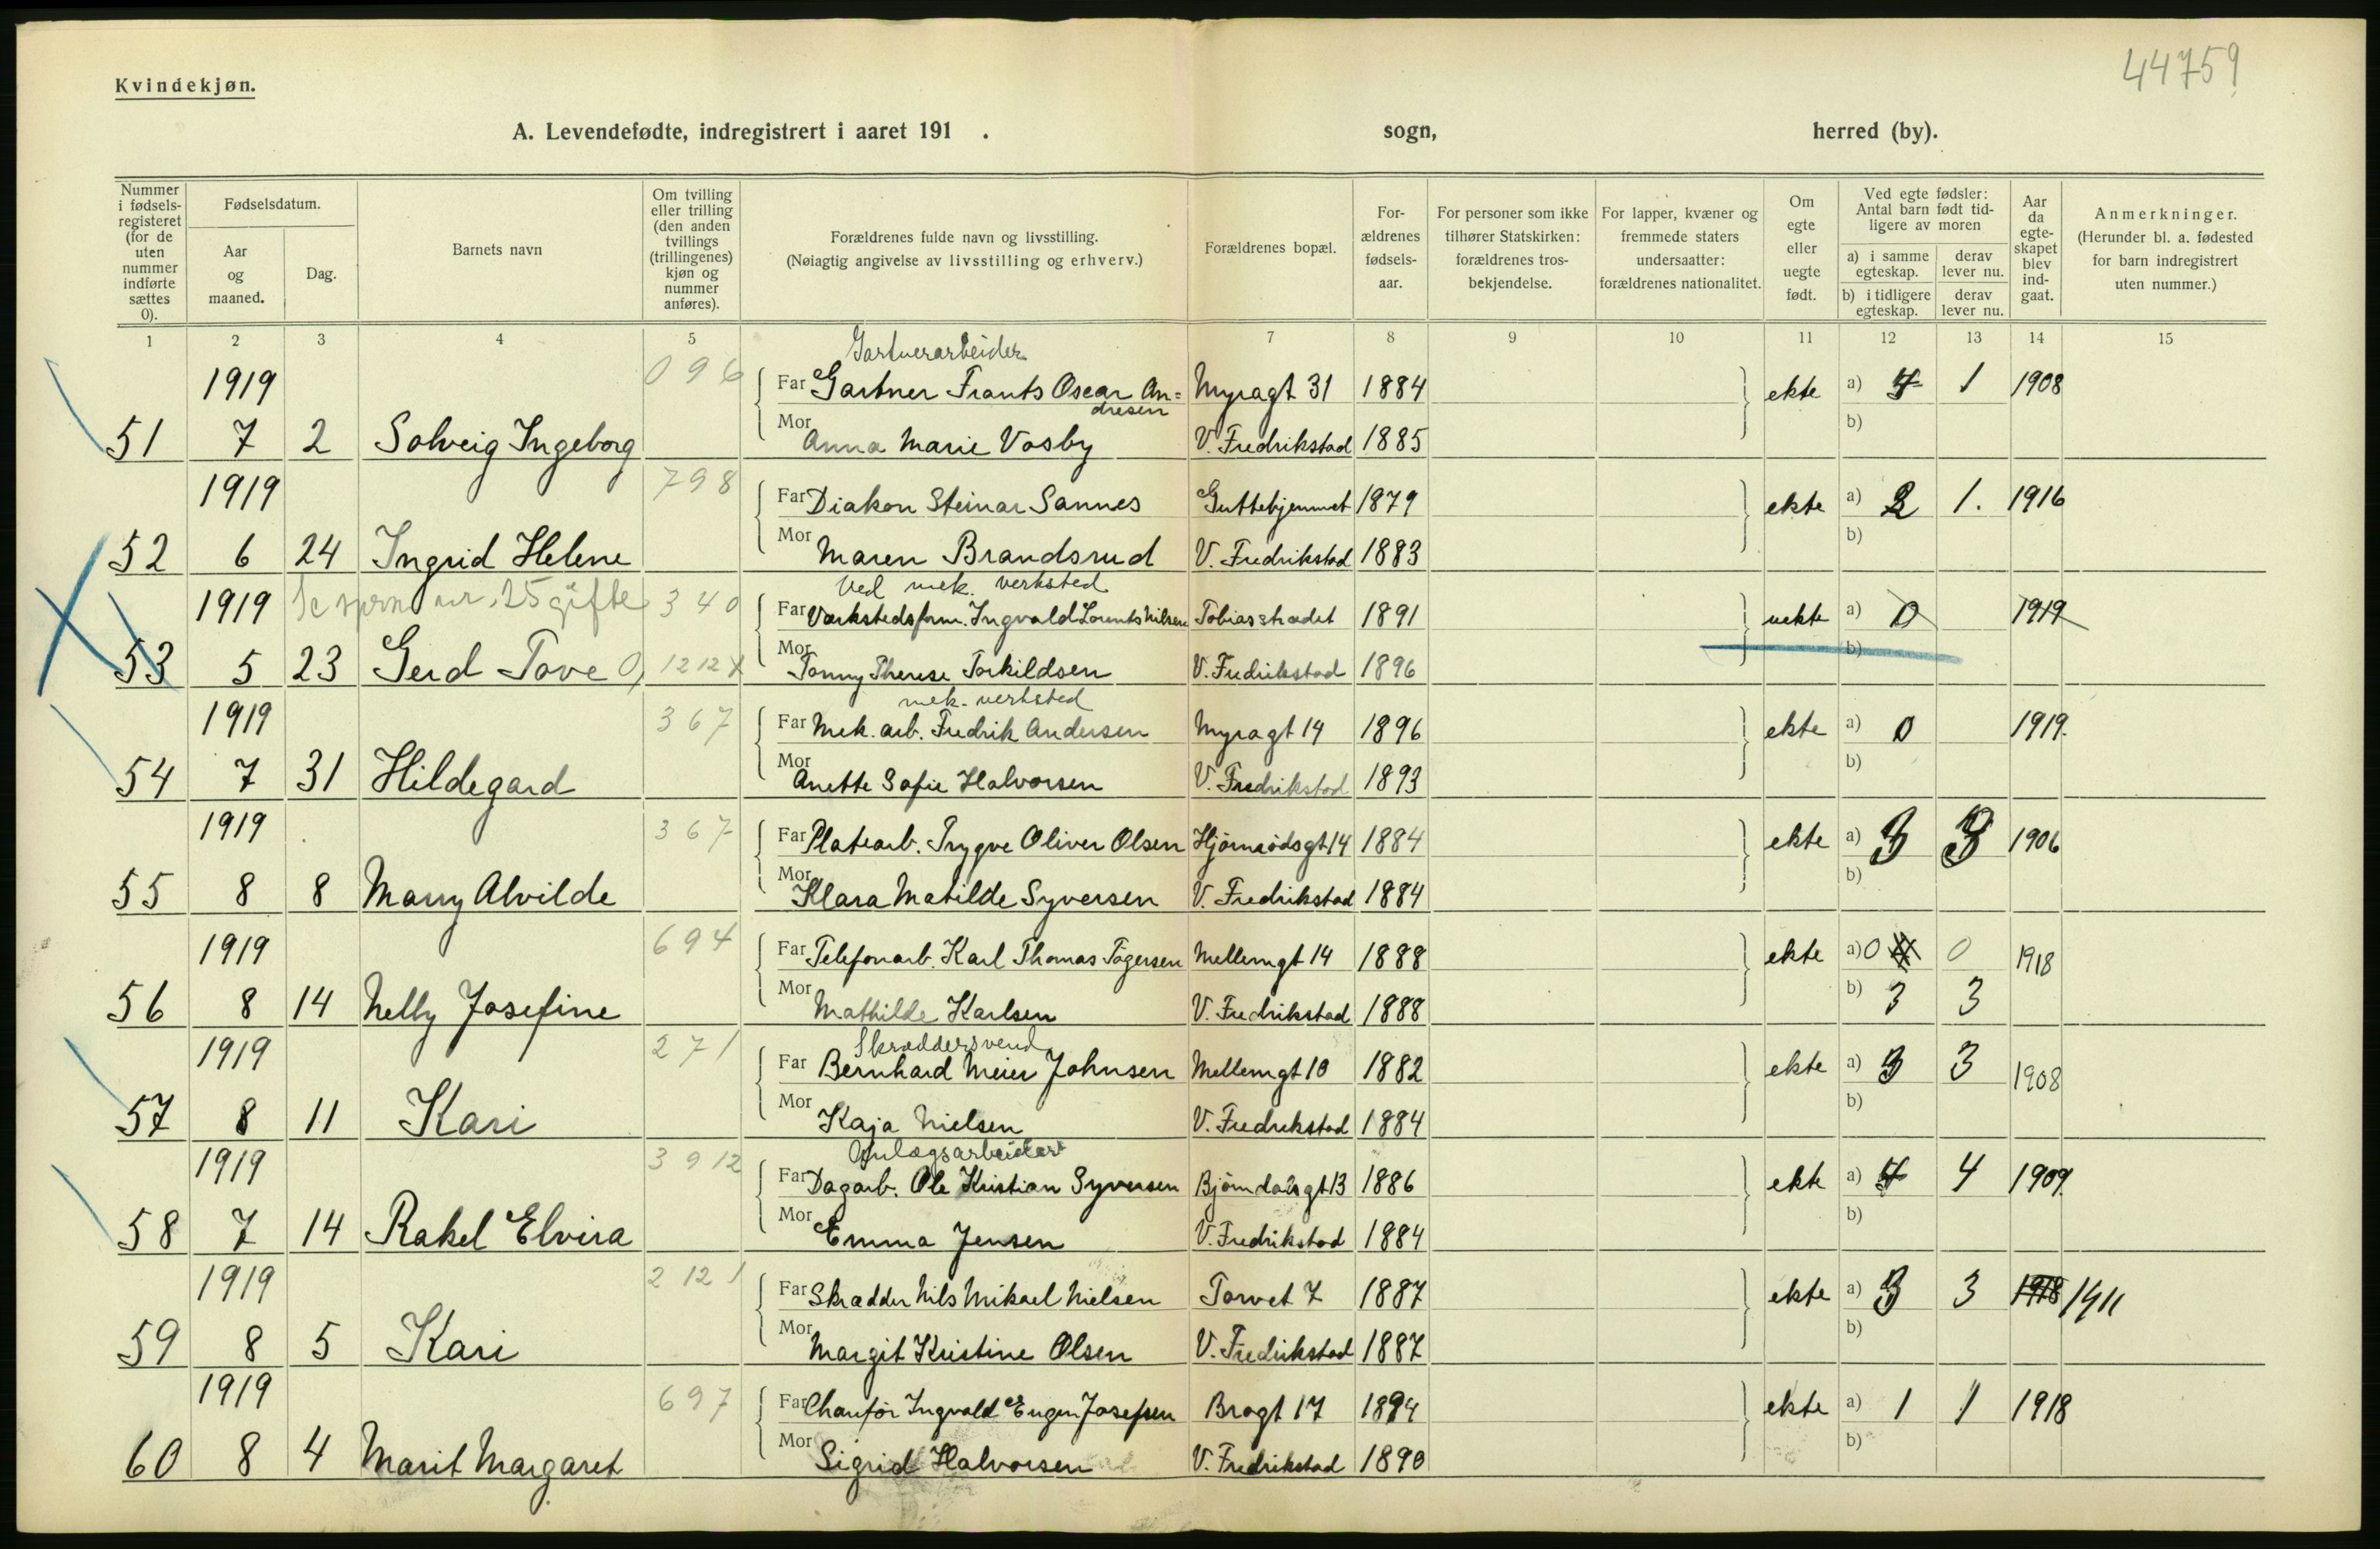 44759
Kvindekjøn.
A. Levendefødte, indregistrert i aaret 191 . sogn, herred (by).
Nummer i fødselsregisteret (for de uten nummer indførte sættes 0).
Fødselsdatum.
Aar og maaned.
Dag.
Barnets navn
Om tvilling eller trilling (den anden tvillings (trillingenes) kjøn og nummer anføres).
Forældrenes fulde navn og livsstilling.
(Nøiagtig angivelse av livsstilling og erhverv.)
Forældrenes bopæl.
For-ældrenes fødsels-aar.
For personer som ikke tilhører Statskirken: forældrenes trosbekjendelse.
For lapper, kvæner og fremmede staters undersaatter: forældrenes nationalitet.
Om egte eller uegte født.
Ved egte fødsler:
Antal barn født tidligere av moren
a) i samme egteskap.
derav lever nu.
b) i tidligere egteskap.
derav lever nu.
Aar da egteskapet blev indgaat.
Anmerkninger.
(Herunder bl. a. fødested for barn indregistrert uten nummer.)
1 2 3 4 5 7 8 9 10 11 12 13 14 15
Gartnerarbeider
1919 096 Far Gartner Frants Oscar An= Myragt 31 1884 ekte a) 1 1908
dresen
51 7 2 Solveig Ingeborg Mor Anna Marie Vosby V. Fredrikstad 1885 b)
1919 798 Far Diakon Steinar Sannes Guttehjemmet 1879 ekte a) 2 1. 1916
52 6 24 Ingrid Helene Mor Maren Brandsrud V. Fredrikstad 1883 b)
Ved mek. verksted
1919 nr. 25 gifte 340 Far Værkstedsform. Ingvald Lorents Nilsen Tobiasstrædet 1891 uekte a) 0 1919
53 5 23 Gerd Tove 1212 X Mor Tonny Therese Torkildsen V. Fredrikstad 1896 b)
mek. verksted
1919 367 Far Mek. arb. Fredrik Andersen Myragt 14 1896 ekte a) 0 1919.
54 7 31 Hildegard Mor Anette Sofie Halvorsen V. Fredrikstad 1893 b)
1919 367 Far Platearb. Trygve Oliver Olsen Hjörnrödsgt 14 1884 ekte a) 3 3 1906
55 8 8 Marry Alvilde Mor Klara Matilde Syversen V. Fredrikstad 1884 b)
1919 694 Far Telefonarb. Karl Thomas Tögersen Mellemgt 14 1888 ekte a) 0 0 1918
56 8 14 Nelly Josefine Mor Mathilde Karlsen V. Fredrikstad 1888 b) 3 3
Skræddersvend
1919 271 Far Bernhard Meier Johnsen Mellemgt 10 1882 ekte a) 3 3 1908
57 8 11 Kari Mor Kaja Nielsen V. Fredrikstad 1884 b)
Anlægsarbeider
1919 3912 Far Dagarb. Ole Kristian Syversen Björndalsgt 13 1886 ekte a) 4 4 1909.
58 7 14 Rakel Elvira Mor Emma Jensen V. Fredrikstad 1884 b)
1919 2121 Far Skrædder Nils Mikael Nielsen Torvet 7 1887 ekte a) 3 3 1918 1911
59 8 5 Kari Mor Margit Kristine Olsen V. Fredrikstad 1887 b)
1919 697 Far Chauför Ingvald Eugen Josefsen Brogt 17 1894 ekte a) 1 1 1918
60 8 4 Marit Margaret Mor Sigrid Halvorsen V. Fredrikstad 1890 b)